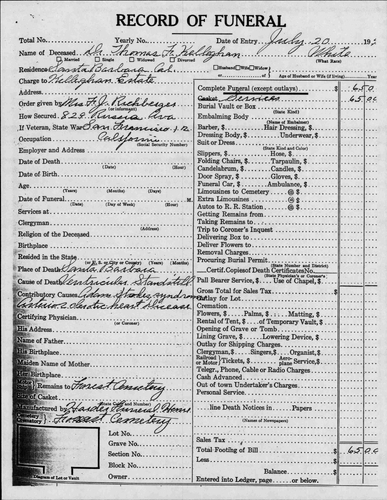 RECORD OF FUNERAL
Total No. Yearly No. Date of Entry July 20 19
Name of Deceased Dr. Thomas F. Kelleghan White
Married Single Widowed Divorced (What Race)
Residence Santa Barbara, Cal.
Charge to Kelleghan Estate
Address
Order given by Mrs F.J.
(or informant)
How Secured 829 Ave
If Veteran, State War San Francisco 12
Occupation California
(Social Security Number)
Employer and Address
Date of Death (Hour)
Date of Birth
Age
(Years) (Months) (Days)
Date of Funeral M.
(Date) (Day of Week) (Hour)
Services at
Clergyman
(Address)
Religion of the Deceased
Birthplace
Resided in the State
Place of Death Santa Barbara
Cause of Death Ventricular Standstill
Contributory Causes Adams Stokes Syndrome
Heart Disease
Certifying Physician
(or Coroner)
His Address
Name of Father
His Birthplace
Maiden Name of Mother
Her Birthplace
Remains to Forest Cemetery
Size of Casket
Manufactured by Funeral Home
Cemetery Forest Cemetery
Lot No.
Grave No.
Section No.
Block No.
Owner
Diagram of Lot or Vault
Husband Widow
Age of Husband or Wife (if living) Yrs.
Complete Funeral (except outlays) $ 65 0
Casket Services 65 00
Burial Vault or Box
(State Kind)
Embalming Body
(Name of Embalmer)
Barber, $ Hair Dressing, $
Dressing Body, $ Underwear, $
Suit or Dress
(State Kind and Color)
Slippers, $ Hose, $
Folding Chairs, $ Tarpaulin, $
Candelabrum, $ Candles, $
Door Spray, $ Gloves, $
Funeral Car, $ Ambulance, $
Limousines to Cemetery @ $
Extra Limousines @ $
Autos to R. R. Station @ $
Getting Remains from
Taking Remains to
Trip to Coroner's Inquest
Delivering Box to
Deliver Flowers to
Removal Charges
Procuring Burial Permit
(State Number and District)
Certif. Copies of Death Certificate No.
(State Physician's or Coroner's)
Pall Bearer Service, $ Use of Chapel, $
Gross Total for Sales Tax $
Outlay for Lot
Cremation
Flowers, $ Palms, $ Matting, $
Rental of Tent, $ of Temporary Vault, $
Opening of Grave or Tomb
Lining Grave, $ Lowering Device, $
Outlay for Shipping Charges
Clergyman, $ Singers, $ Organist, $
Railroad or Motor Tickets, $ Aeroplane Service, $
Telegr., Phone, Cable or Radio Charges
Cash Advanced
Out of town Undertaker's Charges
Personal Service
line Death Notices in Papers
(Name of Newspapers)
Sales Tax
Total Footing of Bill $ 65 00
Less
Balance $
Entered into Ledger, page or below.